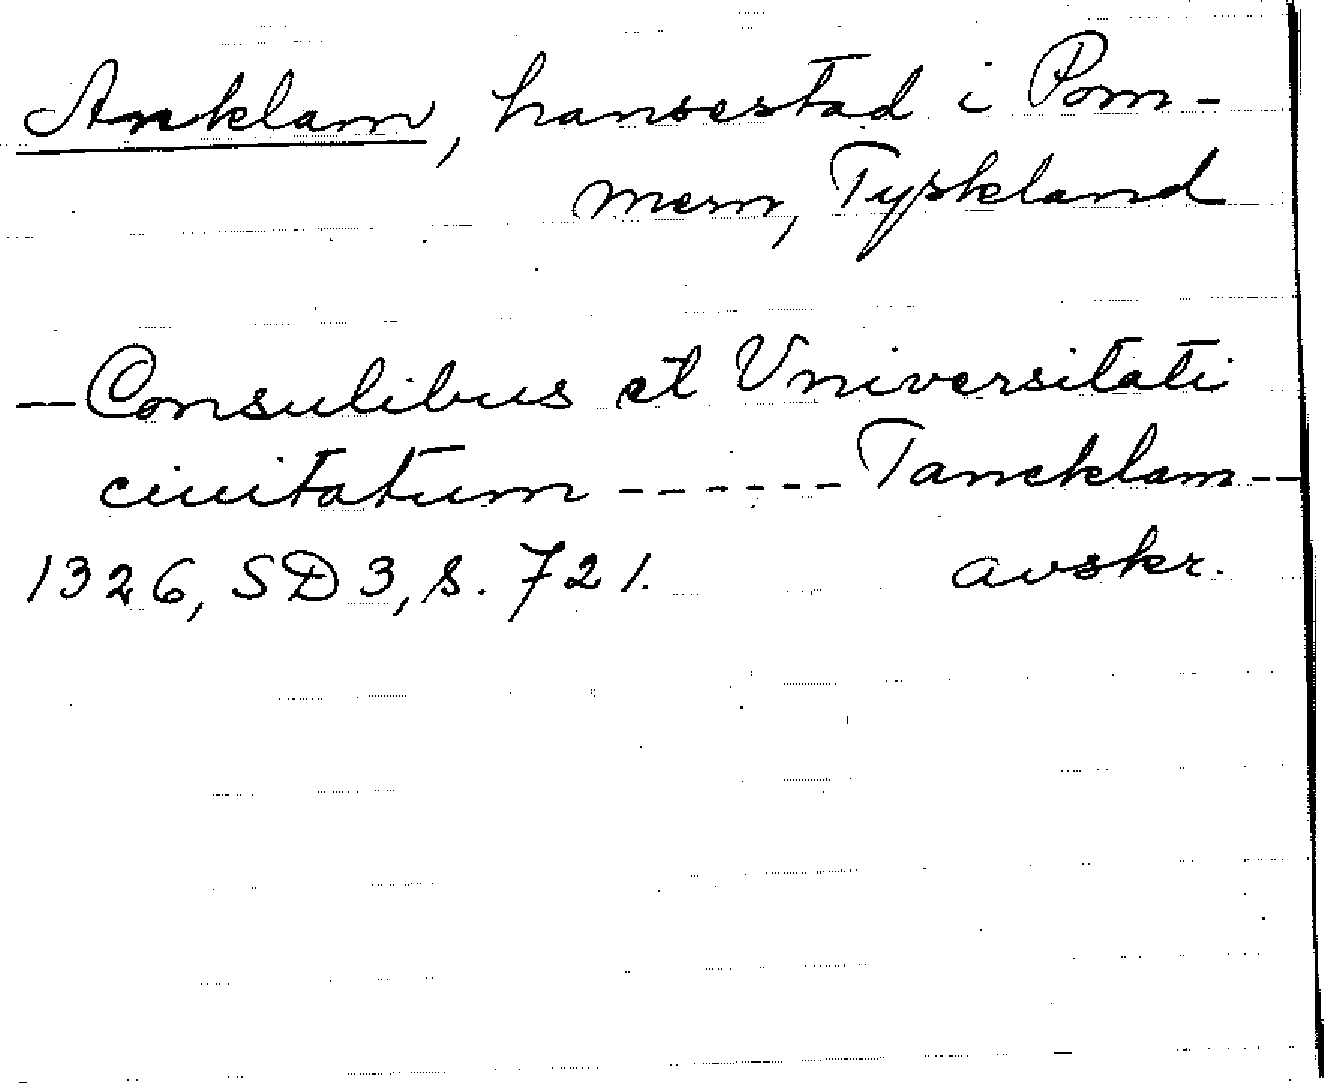 Anklam, hansestad i Pom-
mern, Tyskland
—Consulibus et Universitati
ciuitatum ------ Tancklam--
1326, SD 3, s. 721. avskr.